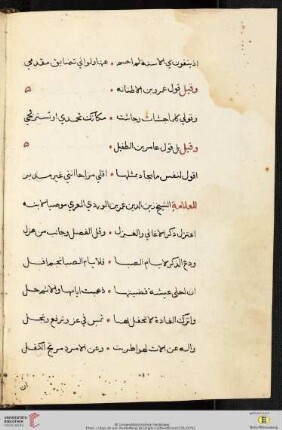 اذ يتقون بي الاسنة لم اخم • عنها ولو اني تضايق مقدمي
وقيل قول عمرو بن الاطنابه
وقولي كلما جشات وجاشت • مكانك تحمدي او تستريحي
وقيل بل قول عامر بن الطفيل
اقول لنفس ما يجاد بمثلها • اقلي مراحا انني غير مدبر
للعلامة الشيخ زين الدين عمر بن الوردي المعري موصيا لابنه
اعتزل ذكر الاغاني والغزل • وقل الفصل وجانب من هزل
ودع الذكر لايام الصبا • فلايام الصبا نجم افل
ان احلى عيشة قضيتها • ذهبت ايامها والاثم حل
واترك الغادة لا تحفل بها • تمس في عز وترفع وتجل
واله عن الات لهو اطربت • وعن الامرد مرتج الكفل
ان